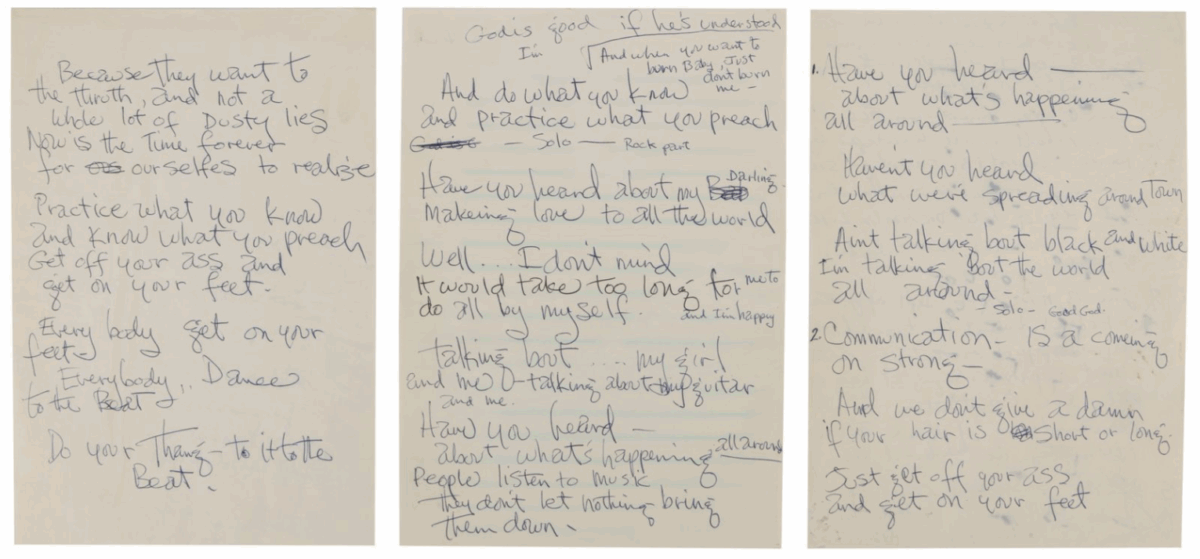 Because they want to
the thruth, and not a
whole lot of Dusty lies
Now is the Time forever
for ourselfes to realize
Practice what you know
and know what you preach
Get off your ass and
get on your feet.
Every body get on your
feet
Everybody,, Dance
to the Beat
Do your Thang - to it to the
Beat.
God is good if he's understood
I'm
And when you want to
burn Baby, Just
don't burn
me -
And do what you know
and practice what you preach
- Solo - Rock part
Have you heard about my Darling
Makeing love to all the world
Well.... I don't mind
It would take too long for me to
do all by myself. and I'm happy
talking bout .... my girl
and me - talking about my guitar
and me.
Have you heard -
about what's happening all around
People listen to music
they don't let nothing bring
them down.
1. Have you heard
about what's happening
all around
Haven't you heard
what we're spreading around Town
Aint talking bout black and white
I'm talking 'Bout the world
all around -
- Solo - Good God.
2. Communication - is a comeing
on strong -
And we don't give a damn
if your hair is Short or long.
Just get off your ass
and get on your feet